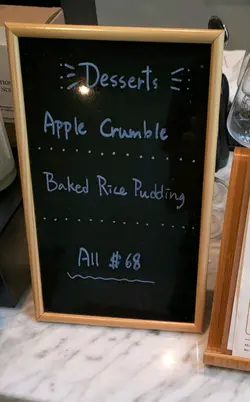 Desserts
Apple Crumble
Baked Rice Pudding
All $68